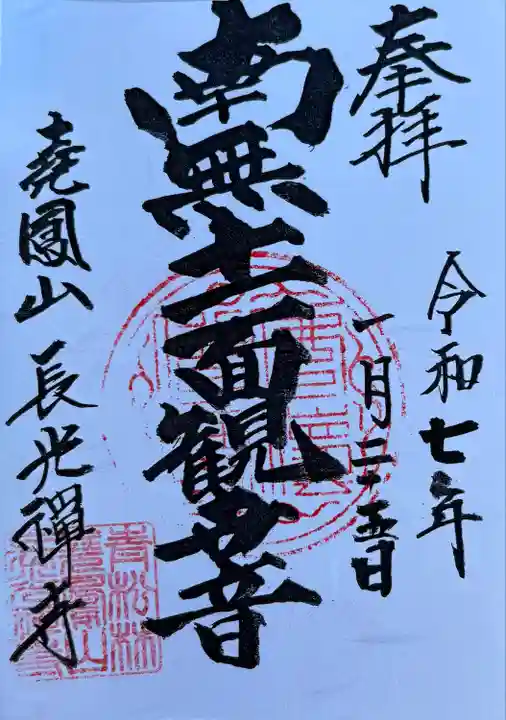 奉拝
令和七年
一月二十五日
南無十一面観世音
堯鳳山 長光禅寺
青松林